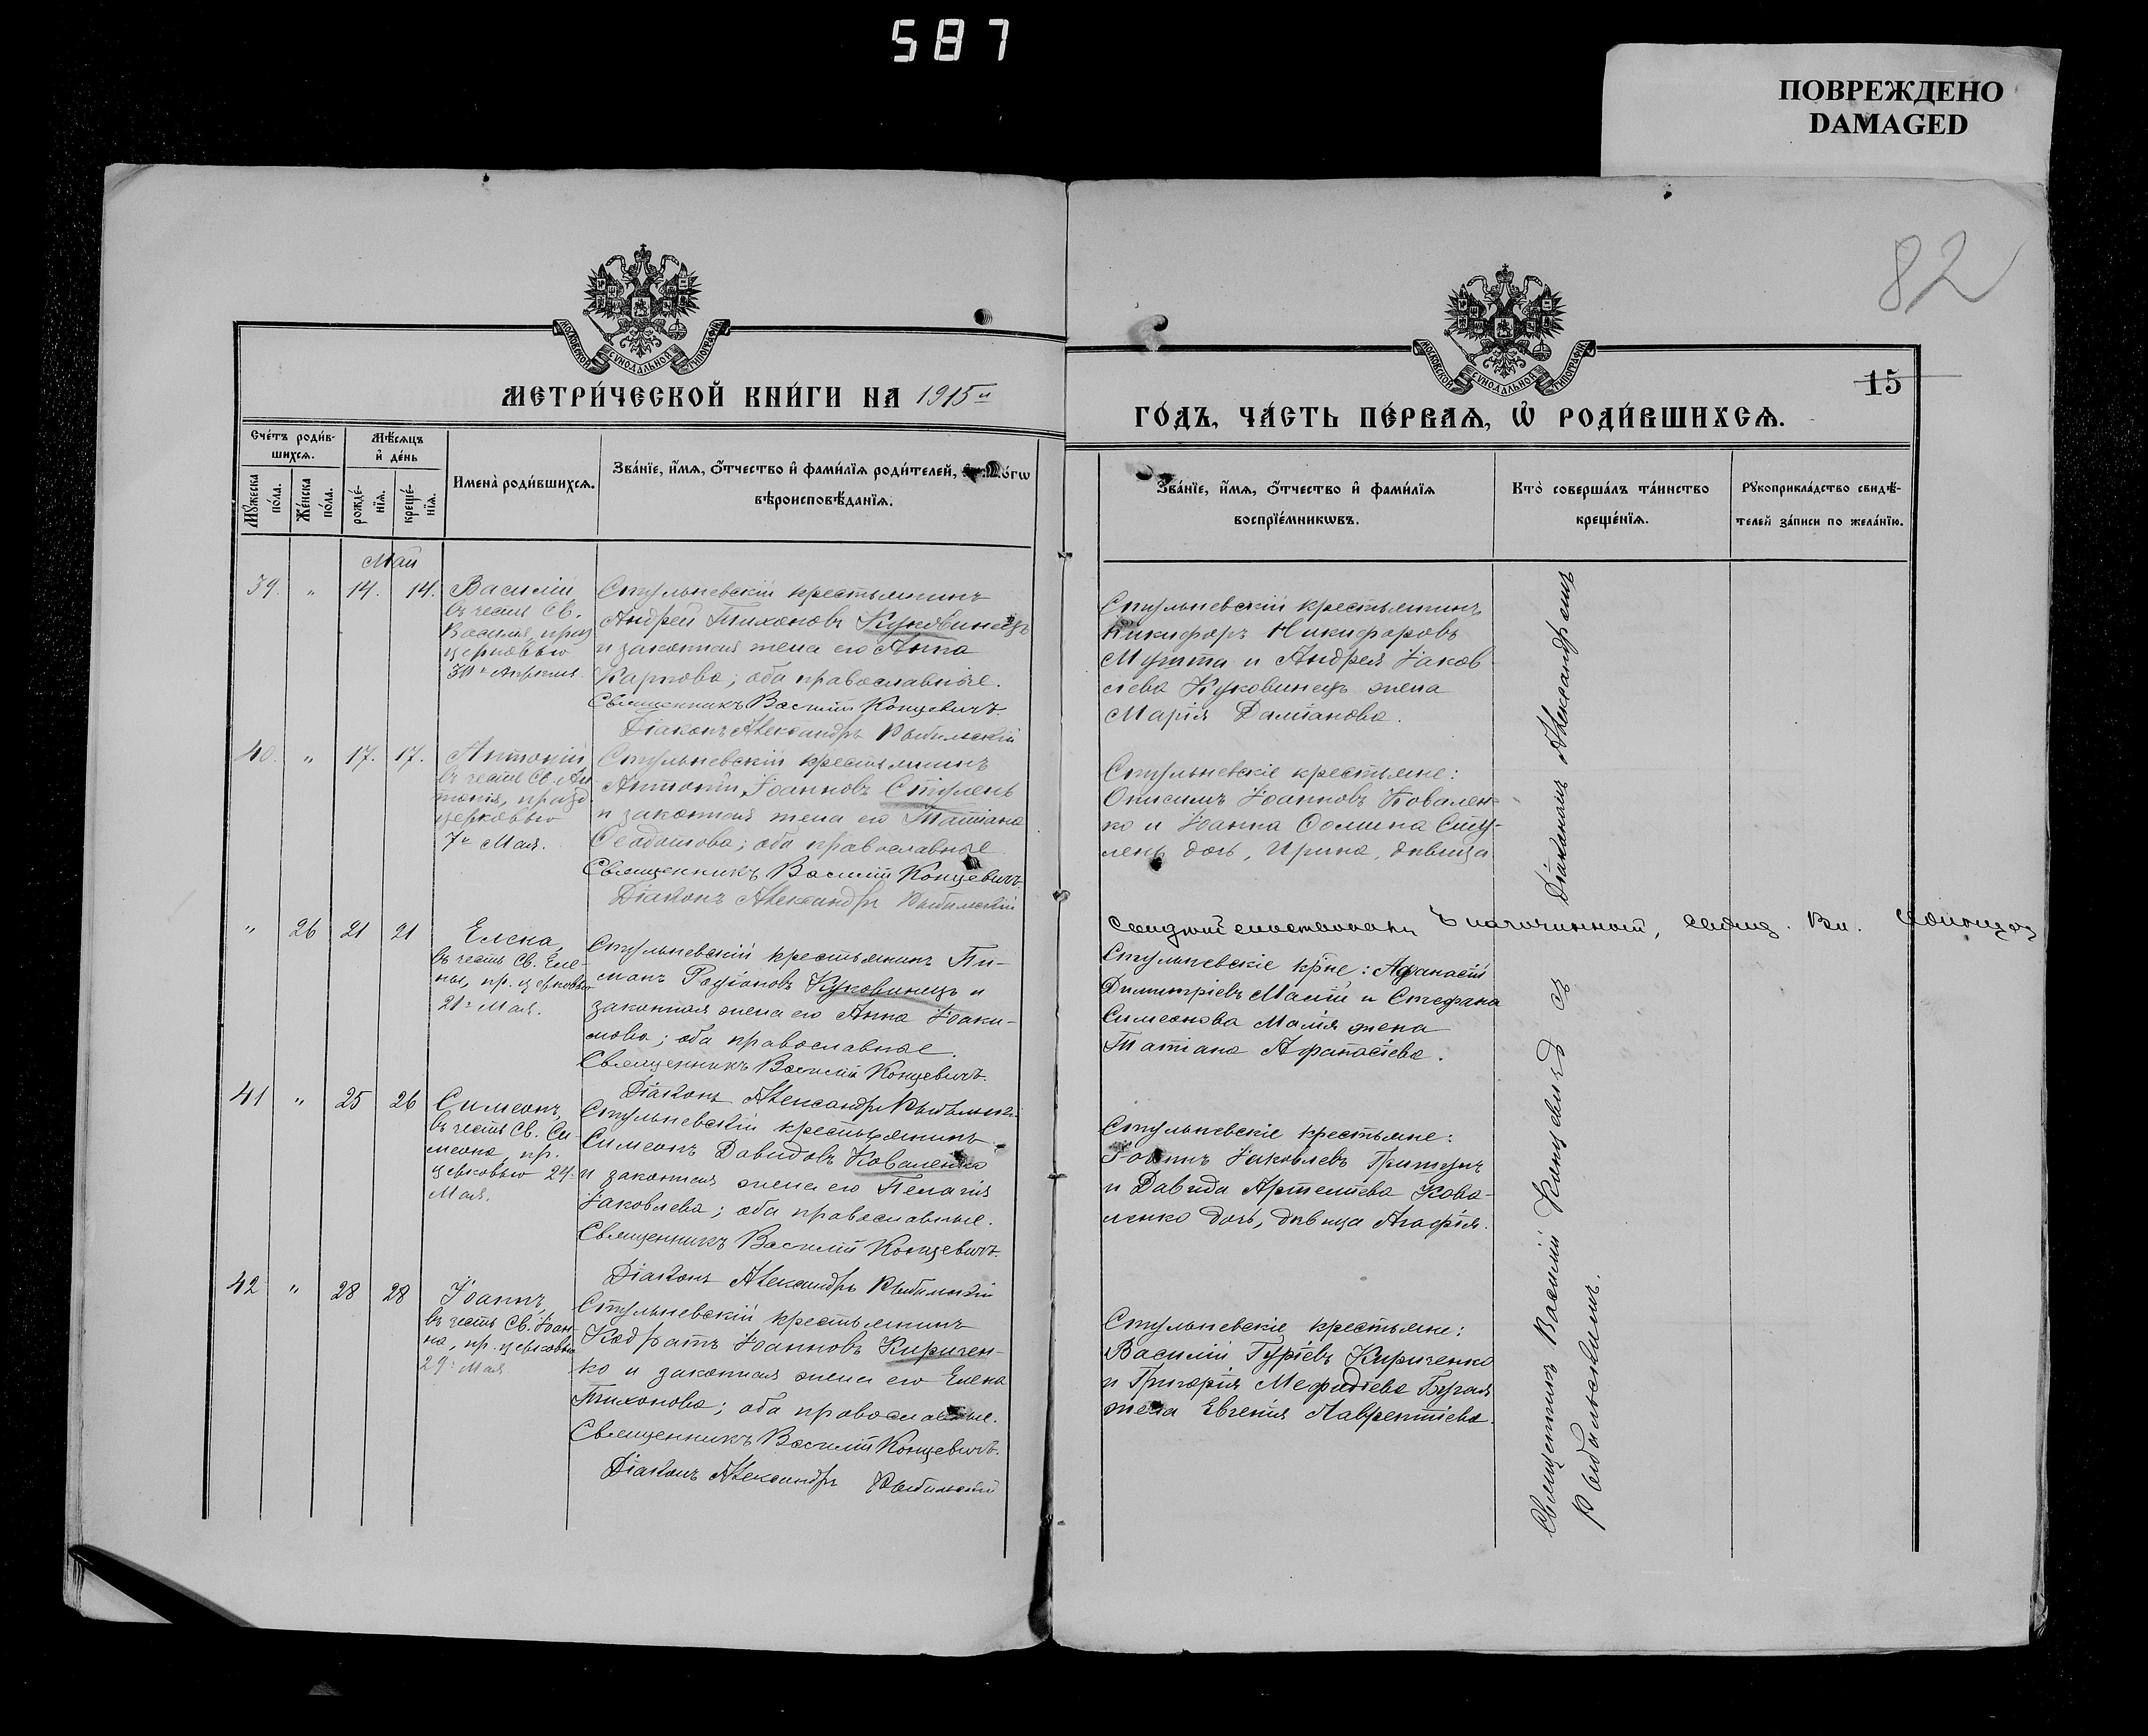 587
ПОВРЕЖДЕНО
DAMAGED
82
МОСКОВСКОЙ СѴНОДАЛЬНОЙ ТИПОГРАФІИ
МОСКОВСКОЙ СѴНОДАЛЬНОЙ ТИПОГРАФІИ
МЕТРИ́ЧЕСКОЙ КНИ́ГИ НА 1915й
15
ГО́ДЪ, ЧА́СТЬ ПЕ́РВАѦ, Ѡ РОДИ́ВШИХСѦ.
Сче́тъ роди́в-
шихсѧ.
Мѣ́сѧцъ
и҆ де́нь
Мꙋжеска
по́ла.
Же́нска
по́ла.
рожде́-
нїѧ.
креще́-
нїѧ.
Имена̀ роди́вшихсѧ.
Зва́нїе, и҆́мѧ, ѻ҆́тчество и҆ фами́лїѧ роди́телей,
вѣроисповѣ́данїѧ.
Зва́нїе, и҆́мѧ, ѻ҆́тчество и҆ фами́лїѧ
воспрїе́мникѡвъ.
Кто̀ соверша́лъ та́инство
креще́нїѧ.
Рꙋкоприкла́дство свидѣ́-
телей за́писи по жела́нїю.
Май
39. " 14. 14.
Василій
въ честь Св.
Василія, празд
церковью
30го Апреля.
Стульневскій крестьянинъ
Андрей Тихоновъ Куковинецъ
и законная жена его Анна
Карпова; оба православные.
Священникъ Василій Концевичъ.
Діаконъ Александръ Рыбальскій
Стульневскій крестьянинъ
Никифоръ Никифоровъ
и Андрея Іаков-
лева Куковинецъ жена
Марія Даміанова.
40. " 17. 17.
Антоній,
въ честь Св. Ан
тонія, празд.
церковью
7го Мая.
Стульневскій крестьянинъ
Антоній Іоанновъ Ступень
и законная жена его Татіана
Ѳеодотова; оба православные
Священникъ Василій Концевичъ.
Діаконъ Александръ Рыбальскій
Стульневскіе крестьяне:
Онисимъ Іоанновъ Ковален-
ко и Іоанна Ѳомина Сту-
пень дочь, Ирина, дѣвица
благочинный, свящ. Вл.
" 26 21 21
Елена,
въ честь Св. Еле-
ны, пр. церковью
21го Мая.
Стульневскій крестьянинъ Пи-
манъ Родіоновъ Куковинецъ и
законная жена его Анна Іоаки-
мова; оба православные.
Священникъ Василій Концевичъ.
Діаконъ Александръ Рыбальскій
Стульневскіе кр-не: Афанасій
Димитріевъ Малый и Стефана
Симеонова Малія жена
Татіана Афанасіева.
41 " 25 26
Симеонъ,
въ честь Св. Си-
меона, пр.
церковью 24.
Мая.
Стульневскій крестьянинъ
Симеонъ Давидовъ Коваленко
и законная жена его Пелагія
Іаковлева; оба православные.
Священникъ Василій Концевичъ.
Діаконъ Александръ Рыбальскій
Стульневскіе крестьяне:
Іоаннъ Іаковлевъ
и Давида Артеміева Кова-
ленко дочь, дѣвица Агафія.
42 " 28 28
Іоаннъ,
въ честь Св. Іоан-
на, пр. церковью
29го Мая.
Стульневскій крестьянинъ
Кодратъ Іоанновъ Киричен-
ко и законная жена его Елена
Тихонова; оба православные.
Священникъ Василій Концевичъ.
Діаконъ Александръ Рыбальскій
Стульневскіе крестьяне:
Василій Гуріевъ Кириченко
и Григорія Мефодіева
жена Евгенія Лаврентіева.
Священникъ Василій Концевичъ съ Діакономъ Александромъ
Рыбальскимъ.